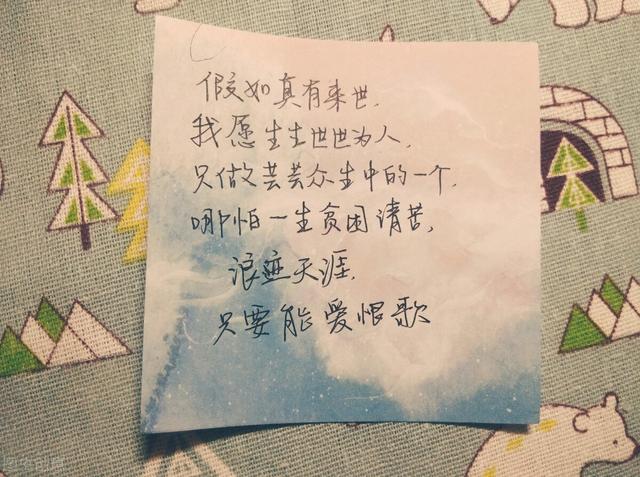 假如真有来世,
我愿生生世世为人,
只做芸芸众生中的一个,
哪怕一生贫困清苦,
浪迹天涯,
只要能爱恨歌